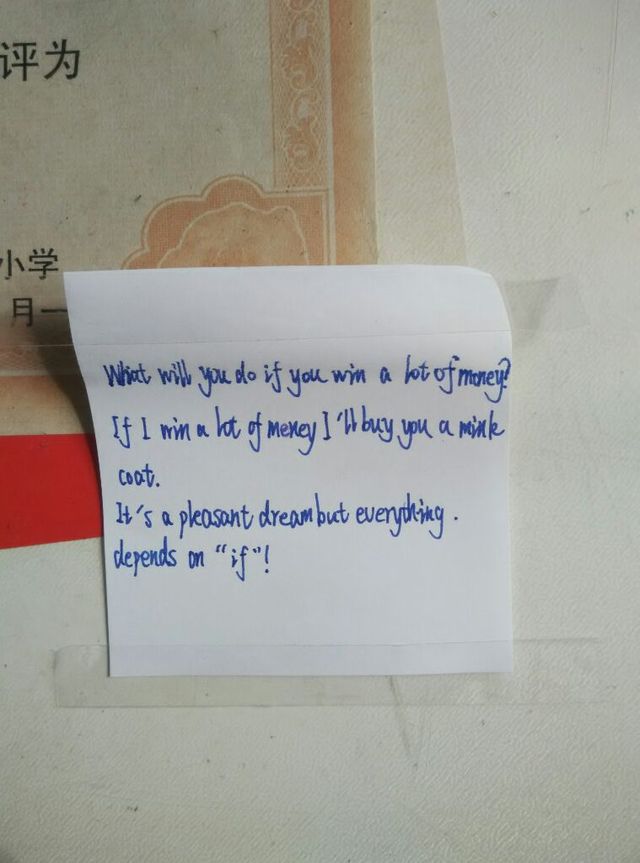 评为
小学
月一
What will you do if you win a lot of money?
If I win a lot of meney I'll buy you a mink
coat.
It's a pleasant dream but everything.
depends on "if"!